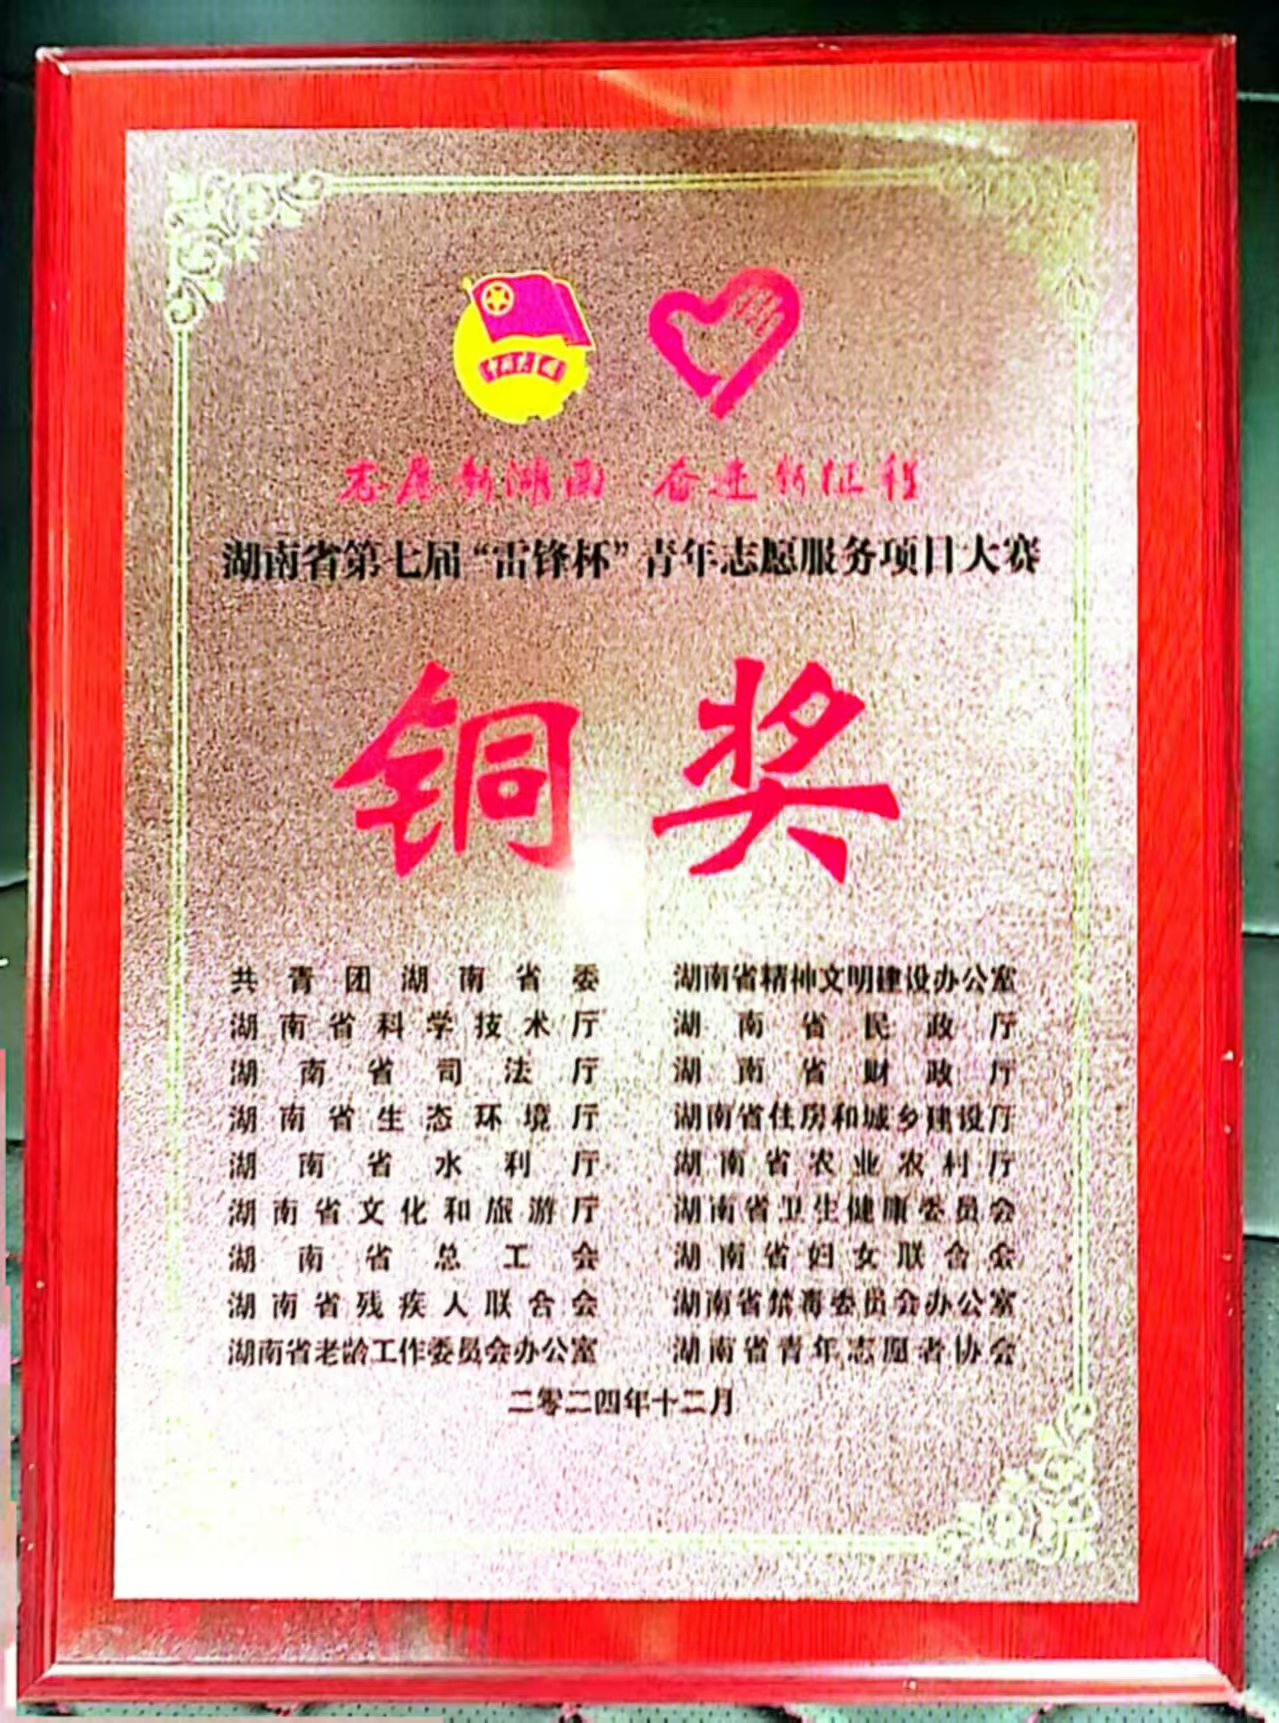 志愿新湖南 奋进新征程
湖南省第七届“雷锋杯”青年志愿服务项目大赛
铜奖
共青团湖南省委 湖南省精神文明建设办公室
湖南省科学技术厅 湖南省民政厅
湖南省司法厅 湖南省财政厅
湖南省生态环境厅 湖南省住房和城乡建设厅
湖南省水利厅 湖南省农业农村厅
湖南省文化和旅游厅 湖南省卫生健康委员会
湖南省总工会 湖南省妇女联合会
湖南省残疾人联合会 湖南省禁毒委员会办公室
湖南省老龄工作委员会办公室 湖南省青年志愿者协会
二零二四年十二月